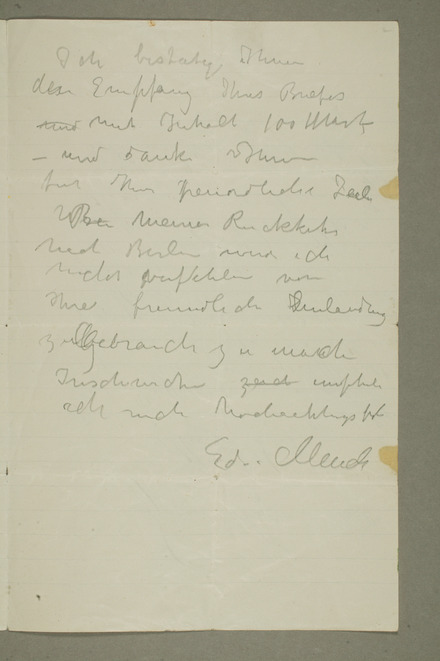 Ich bestatig Ihnen
den Empfang Ihres Briefes
und mit Inhalt 100 Mark
– und danke Ihnen
fur Ihre freundliche Zeile
Bei meiner Ruckkehr
nach Berlin werde ich
nicht verfehlen von
Ihrer freundlich Einladung
zu Gebrauch zu mach
Inzwischen empfehl
ich mich Hochachtungsfol
Edv. Munch